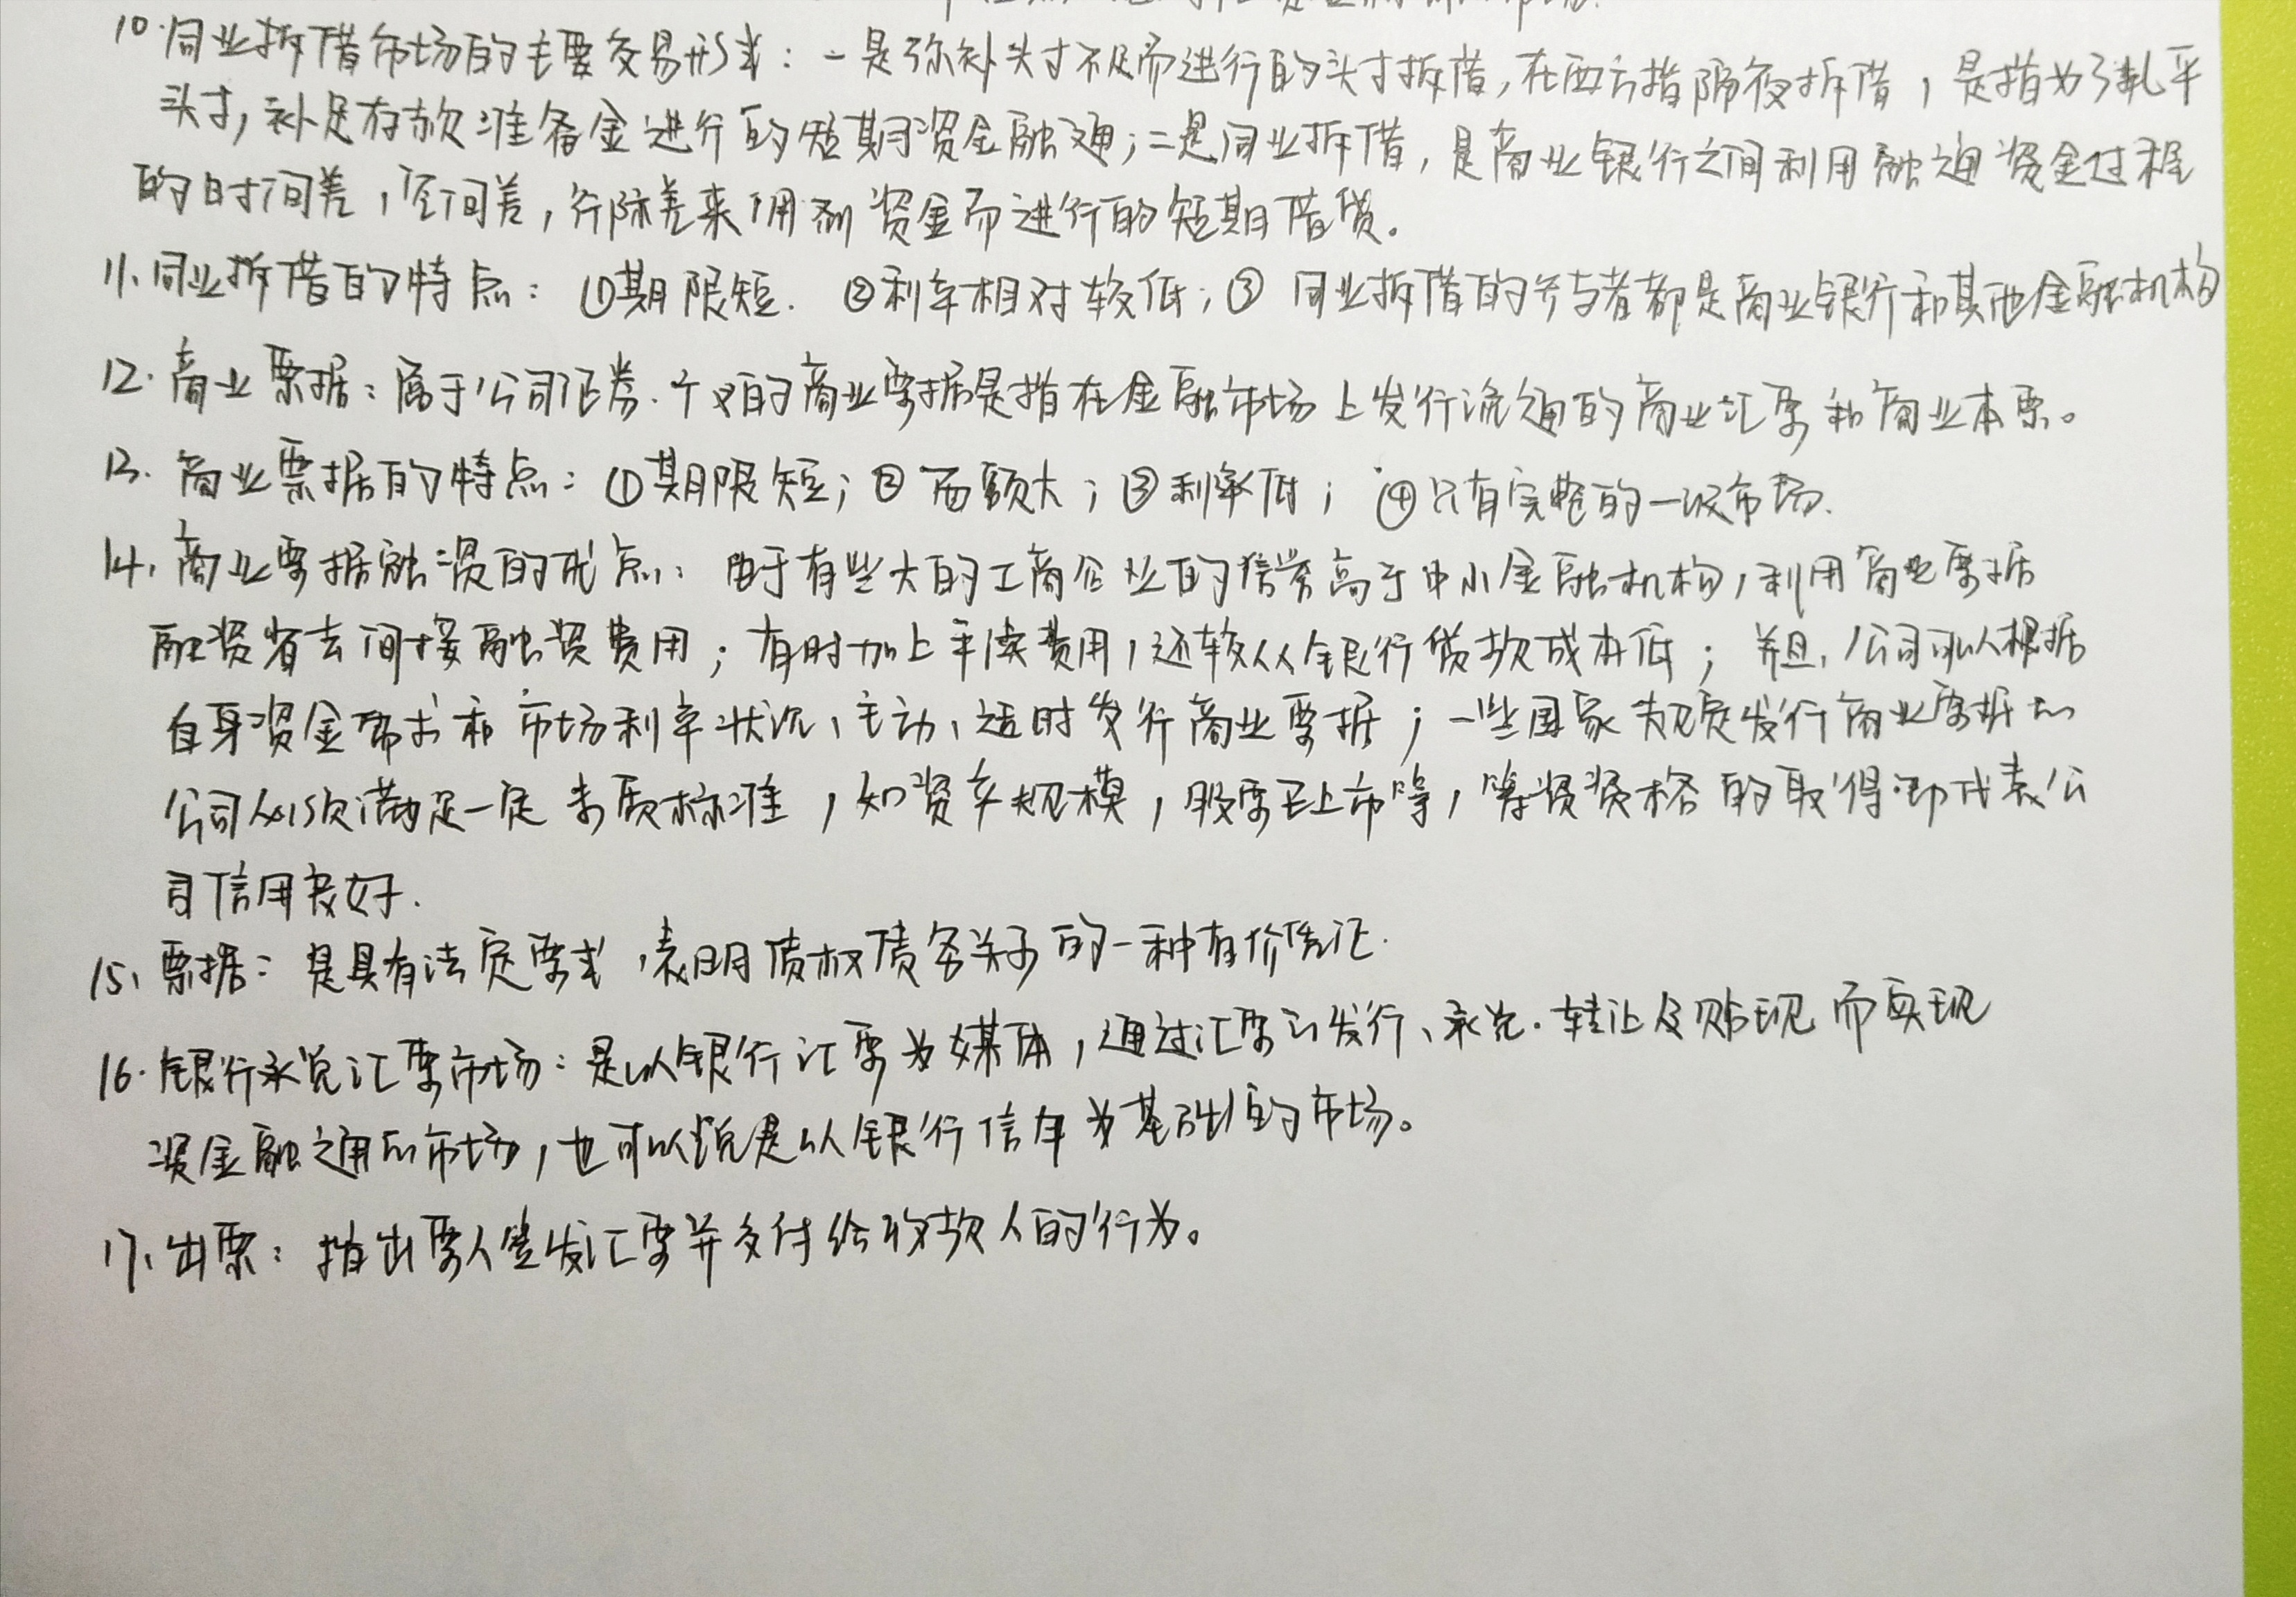 10.同业拆借市场的主要交易形式：一是弥补头寸不足而进行的头寸拆借，在西方指隔夜拆借，是指为了轧平
头寸，补足存款准备金进行的短期资金融通；二是同业拆借，是商业银行之间利用融通资金过程
的时间差，空间差，行际差来调剂资金而进行的短期借贷。
11.同业拆借的特点：①期限短. ②利率相对较低；③ 同业拆借的参与者都是商业银行和其他金融机构
12.商业票据：属于公司证券.个义的商业票据是指在金融市场上发行流通的商业汇票和商业本票。
13.商业票据的特点：①期限短；②面额大；③利率低；④只有完整的一级市场.
14.商业票据融资的优点：由于有些大的工商企业的信誉高于中小金融机构，利用商业票据
融资省去间接融资费用；有时加上手续费用，还较从银行贷款成本低；并且，公司可以根据
自身资金需求和市场利率状况，主动、适时发行商业票据；一些国家规定发行商业票据的
公司必须满足一定素质标准，如资本规模，股票已上市等，筹资资格的取得即代表公
司信用良好.
15、票据：是具有法定要式，表明债权债务关系的一种有价凭证.
16.银行承兑汇票市场：是以银行汇票为媒体，通过汇票的发行、承兑.转让及贴现而实现
资金融通的市场，也可以说是以银行信用为基础的市场。
17、出票：指出票人签发汇票并交付给收款人的行为。